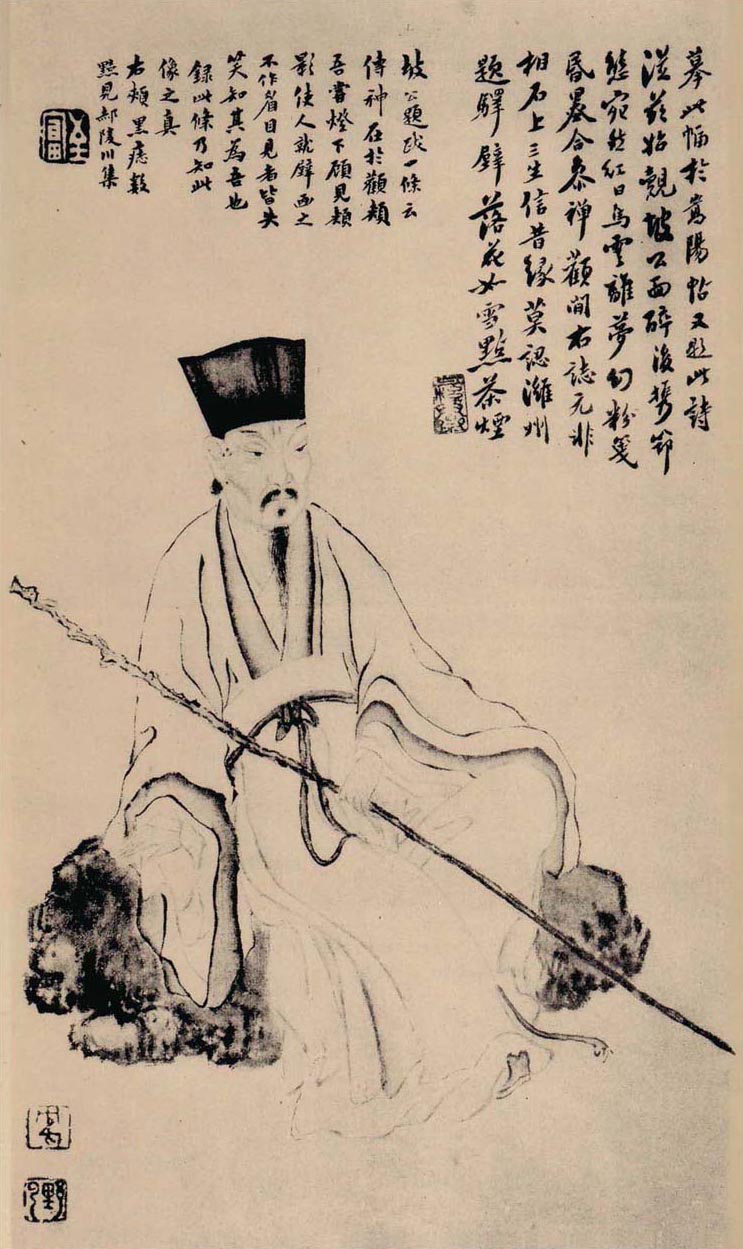 摹此幅於嵩陽帖又題此詩
從茲始覿坡公面醉後攜筇
態宛然紅日烏雲離夢幻粉箋
昏墨合參禪顴間右誌元非
相石上三生信昔緣莫認濰州
題驛壁落花如雪點茶煙
坡公題跋一條云
傳神在於顴頰
吾嘗燈下顧見頰
影使人就壁画之
不作眉目見者皆失
笑知其為吾也
録此條乃知此
像之真
右頰黑痣數
點見郝陵川集